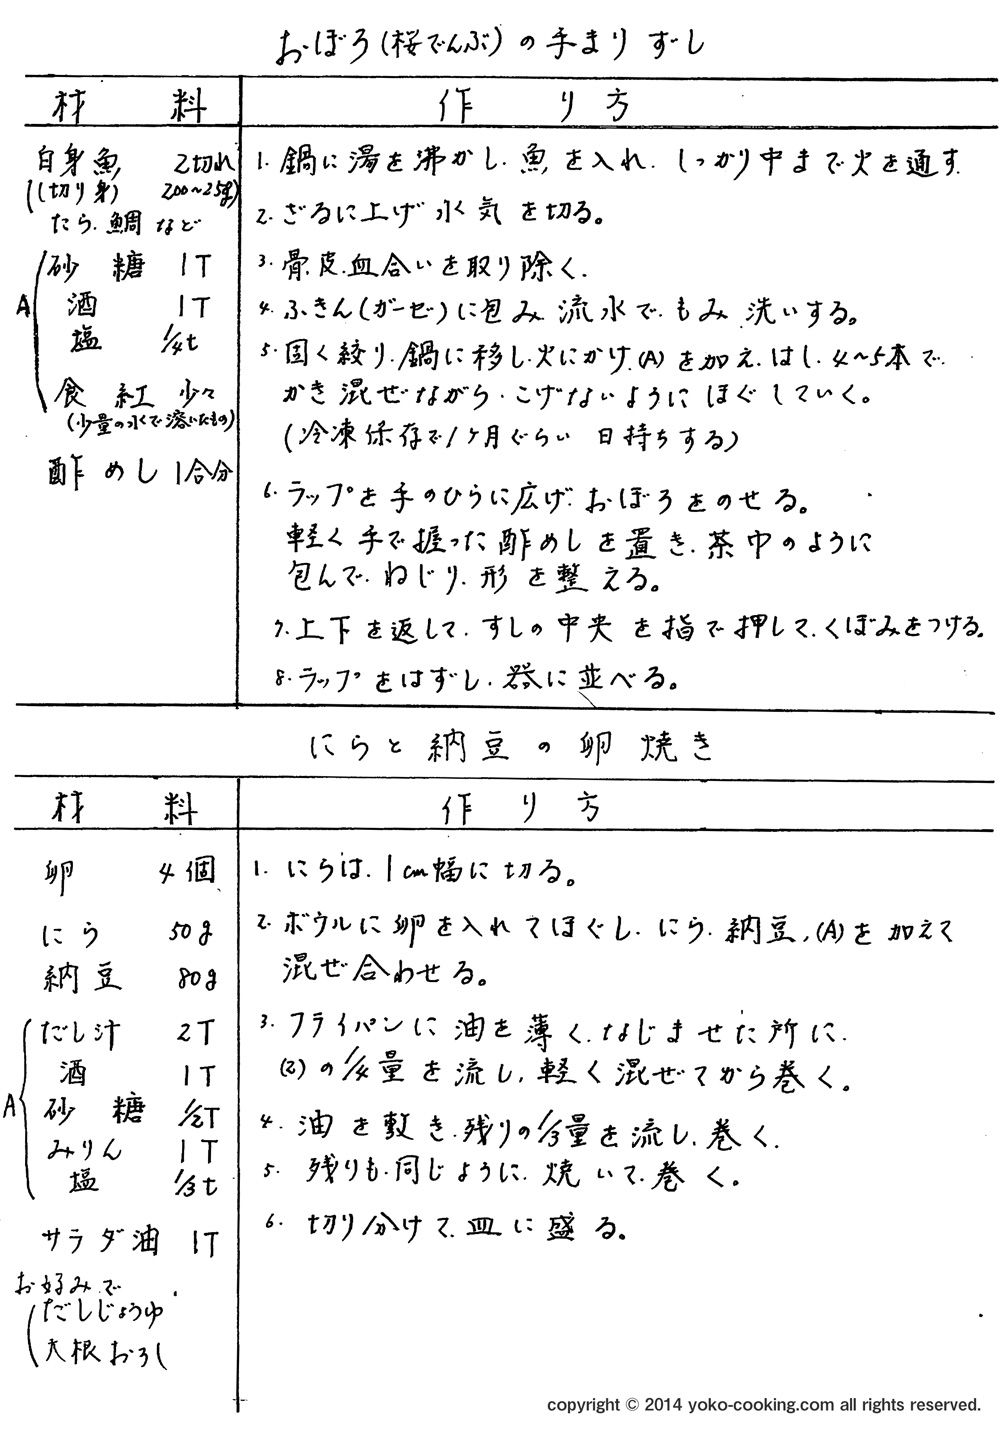 おぼろ(桜でんぶ)の手まりずし
材料
作り方
白身魚 2切れ
(切り身) 200〜25g)
たら、鯛など
A
砂糖 1T
酒 1T
塩 1/4t
食紅 少々
(少量の水で溶いたもの)
酢めし 1合分
1. 鍋に湯を沸かし、魚を入れ、しっかり中まで火を通す。
2. ざるに上げ水気を切る。
3. 骨、皮、血合いを取り除く。
4. ふきん(ガーゼ)に包み、流水で、もみ洗いする。
5. 固く絞り、鍋に移し、火にかけ、(A)を加え、はし、4〜5本で
かき混ぜながら、こげないようにほぐしていく。
(冷凍保存で1ヶ月ぐらい日持ちする)
6. ラップを手のひらに広げ、おぼろをのせる。
軽く手で握った酢めしを置き、茶巾のように
包んで、ねじり、形を整える。
7. 上下を返して、すしの中央を指で押して、くぼみをつける。
8. ラップをはずし、器に並べる。
にらと納豆の卵焼き
材料
作り方
卵 4個
にら 50g
納豆 80g
A
だし汁 2T
酒 1T
砂糖 1/2T
みりん 1T
塩 1/3t
サラダ油 1T
お好みで
(だしじょうゆ
大根おろし
1. にらは、1cm幅に切る。
2. ボウルに卵を入れてほぐし、にら、納豆、(A)を加えて
混ぜ合わせる。
3. フライパンに油を薄く、なじませた所に、
(2)の1/4量を流し、軽く混ぜてから巻く。
4. 油を敷き、残りの1/3量を流し、巻く。
5. 残りも、同じように、焼いて、巻く。
6. 切り分けて、皿に盛る。
copyright © 2014 yoko-cooking.com all rights reserved.